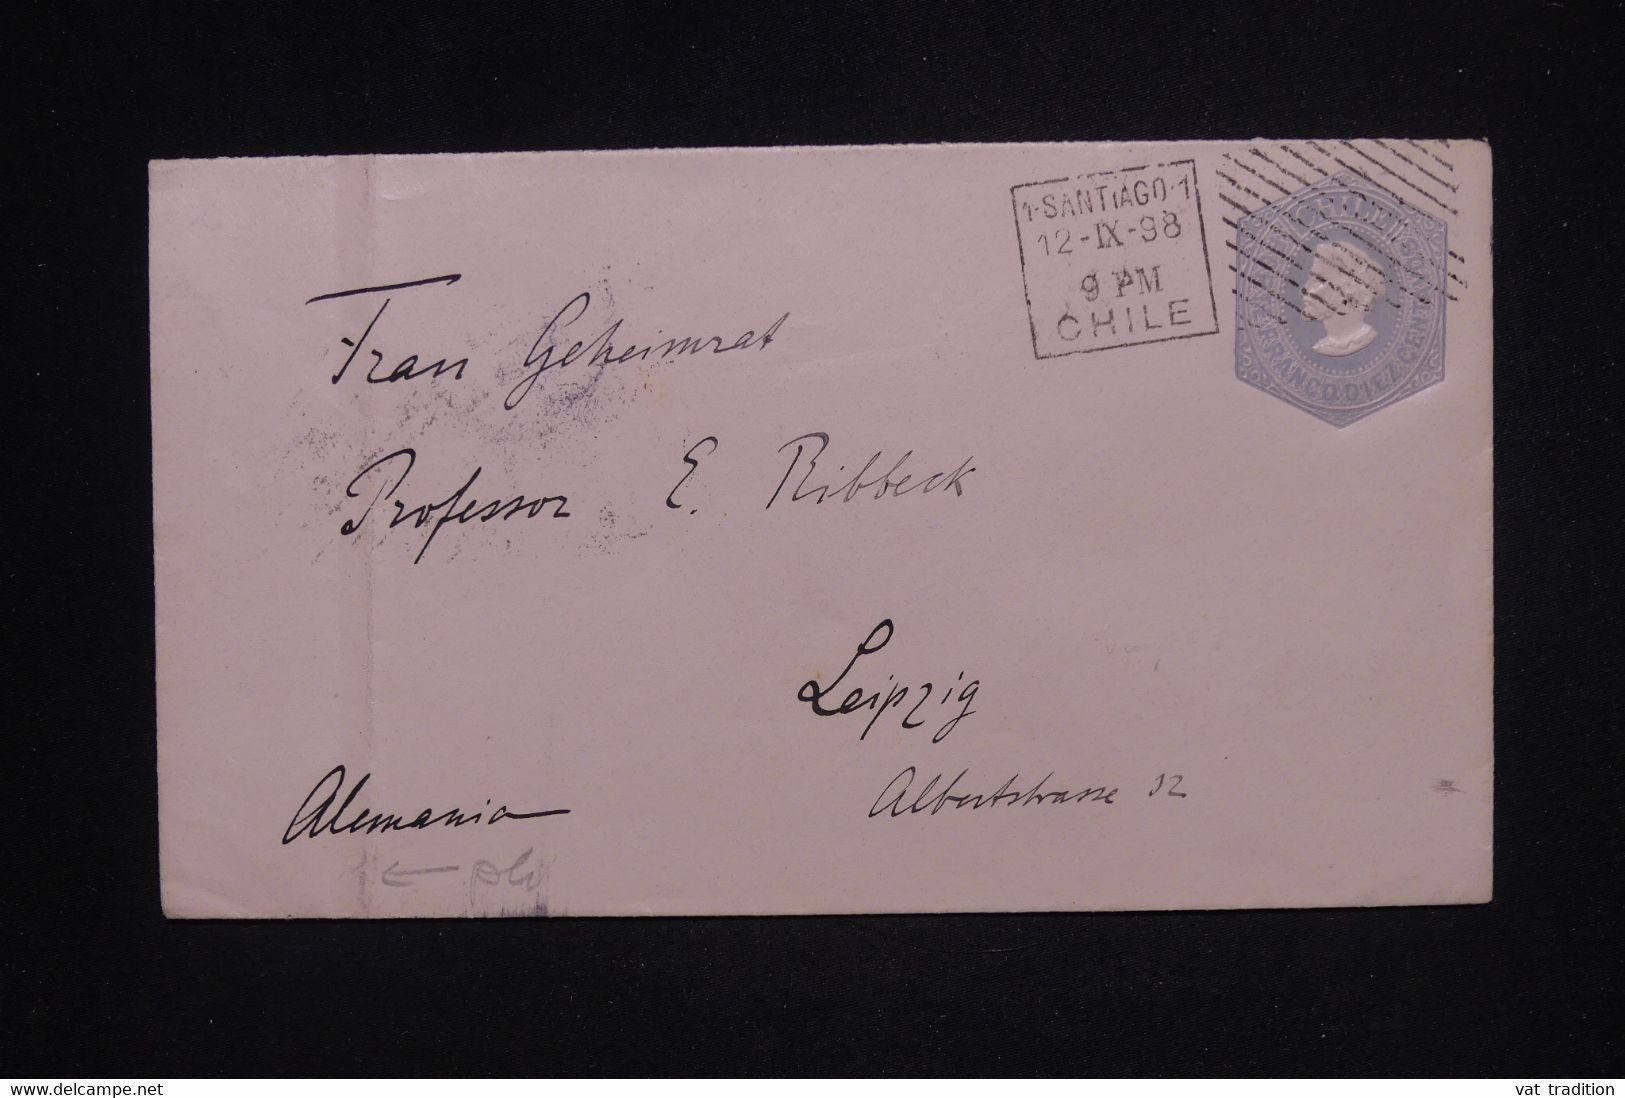 1·SANTIAGO·1
12-IX-98
9 PM
CHILE
CHILE
FRANCO DIEZ CENTAVOS
Frau Geheimrat
Professor E. Ribbeck
Leipzig
Albertstrasse
Alemania
www.delcampe.net
vat_tradition